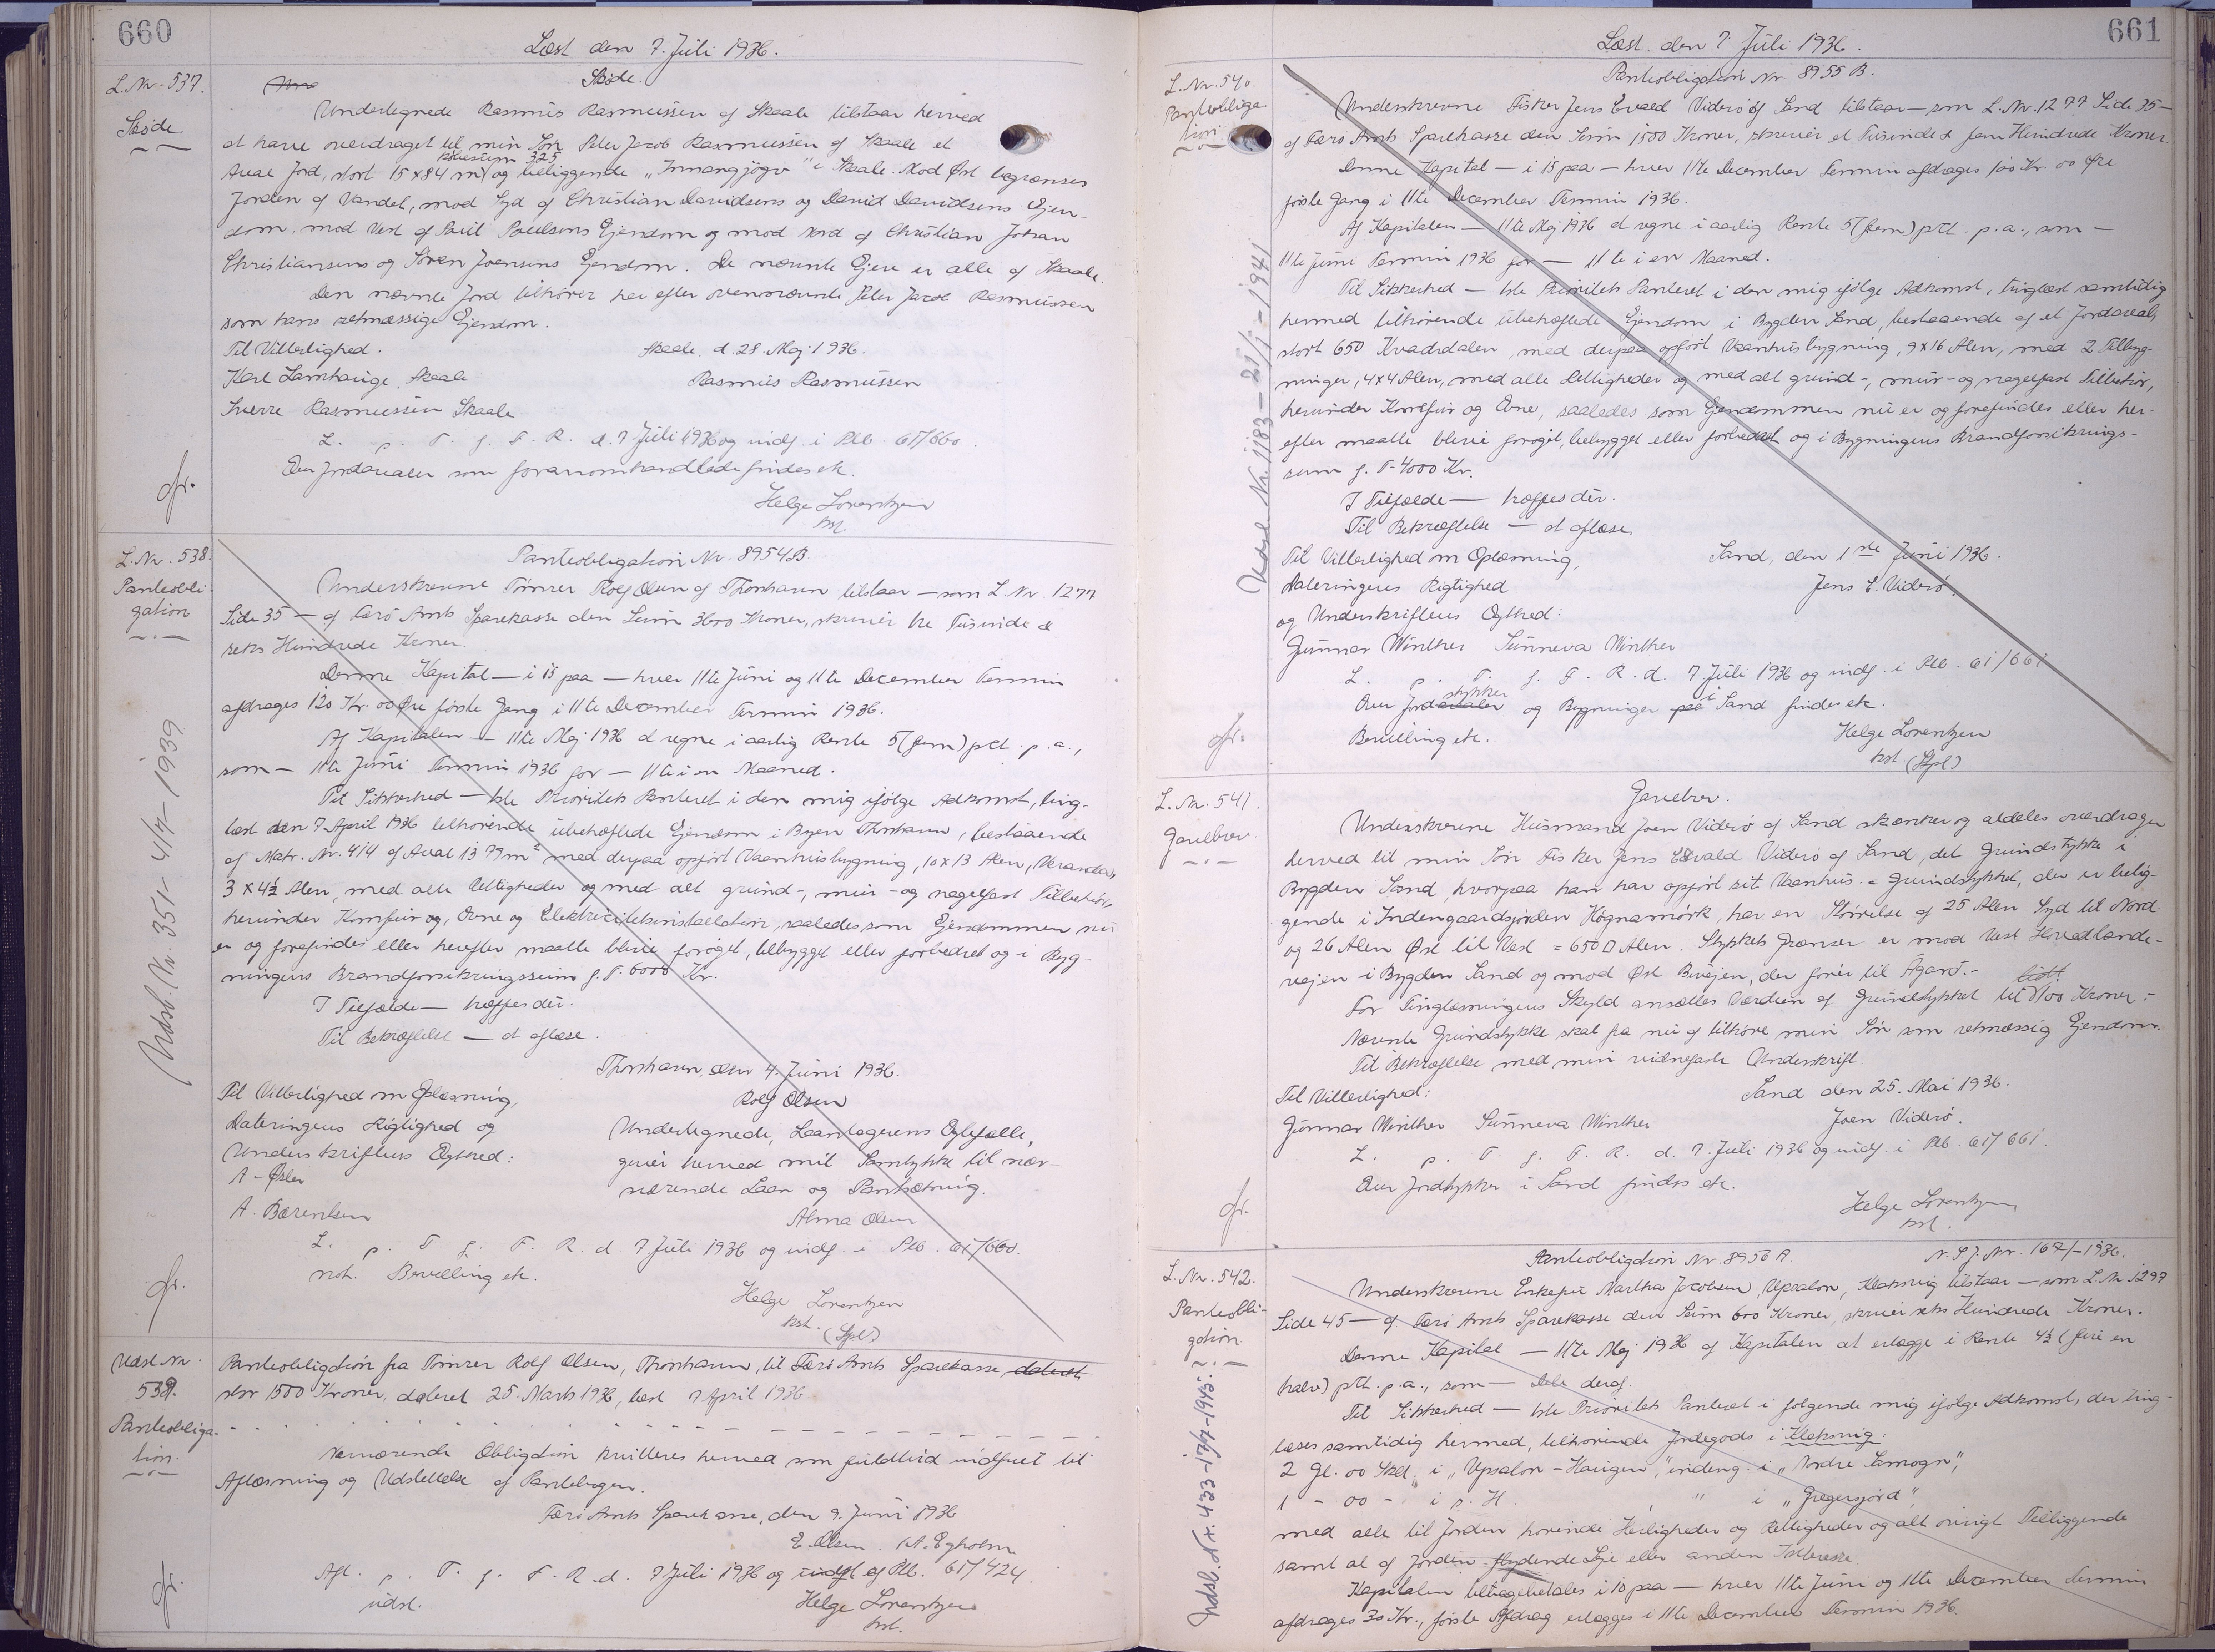 660
Læst den 7. Juli 1936.
L. Nr. 537.
Skøde
Skøde.
Undertegnede Rasmus Rasmussen af Skaale tilstaar herved
at have overdraget til min Søn Peter Jacob Rasmussen af Skaale et
Areal Jord, stort 15 x 84 m og beliggende „Innangjógv“ i Skaale. Mod Øst begrænses
Jorden af Vandet, mod Syd af Christian Davidsens og David Davidsens Ejen-
dom, mod Vest af Poul Poulsens Ejendom og mod Nord af Christian Johan
Christiansens og Søren Joensens Ejendom. De nævnte Ejere er alle af Skaale.
Den nævnte Jord tilhører her efter ovennævnte Peter Jacob Rasmussen
som hans retmæssige Ejendom.
Til Vitterlighed.
Skaale, d. 28. Maj 1936.
Karl Lamhauge, Skaale
Rasmus Rasmussen
Sverre Rasmussen Skaale
L. p. T. f. F. R. d. 7 Juli 1936 og indf. i Plb. 61/660.
Over Jordarealer som foranomhandlede findes ek.
Helge Lorentzen
kst.
L. Nr. 538.
Panteobli-
gation
Panteobligation Nr. 8954 B
Underskrevne Tømrer Rolf Olsen af Thorshavn tilstaar — som L Nr. 1277
Side 35 — af Færø Amts Sparekasse den Sum 3600 Kroner, skriver tre Tusinde &
seks Hundrede Kroner.
Denne Kapital — i 15 paa — hver 11te Juni og 11te December Termin
afdrages 120 Kr. 00 Øre første Gang i 11te December Termin 1936.
Af Kapitalen — 11te Maj 1936 at regne i aarlig Rente 5 (fem) pCt. p. a.,
som — 11te Juni Termin 1936 for — 11te i en Maaned.
Til Sikkerhed — 1ste Prioritets Panteret i den mig ifølge Adkomst, ting-
læst den 7 April 1936 tilhørende ubehæftede Ejendom i Byen Thorshavn, bestaaende
af Matr. Nr. 414 af Areal 1379 m² med derpaa opført Vaanhusbygning, 10 x 13 Alen, Veranda,
3 x 4½ Alen, med alle Rettigheder og med alt grund-, mur- og nagelfast Tilbehør,
herunder Komfur og Ovne og Elektricitetsinstallation, saaledes som Ejendommen nu
er og forefindes eller herefter maatte blive forøget, tilbygget eller forbedret og i Byg-
ningens Brandforsikringssum f. T. 6000 Kr.
I Tilfælde — træffes der.
Til Bekræftelse — at aflæse.
Thorshavn, den 4. Juni 1936.
Til Vitterlighed om Oplæsning,
Rolf Olsen
Dateringens Rigtighed og
Undertegnede, Laantagerens Ægtefælle,
Underskriftens Ægthed:
giver herved mit Samtykke til nær-
A. Øster
værende Laan og Pantsætning.
A. Bærentsen
Alma Olsen
L. p. T. f. F. R. d. 7 Juli 1936 og indf. i Plb. 61/660.
not. Bevilling ek.
Helge Lorentzen
kst. (Spl)
Udsl. Nr. 351 - 4/7 - 1939
Udsl Nr.
539.
Panteobliga-
tion
Panteobligation fra Tømrer Rolf Olsen, Thorshavn, til Færø Amts Sparekasse dateret
stor 1500 Kroner, dateret 25. Marts 1936, læst 7 April 1936
Nærværende Obligation kvitteres herved som fuldtud indfriet til
Aflæsning og Udslettelse af Pantebogen.
Færø Amts Sparekasse, den 9. Juni 1936
E. Olsen. /A. Egholm
Afl. p. T. f. F. R. d. 7 Juli 1936 og indf af Plb. 61/424.
udsl.
Helge Lorentzen
kst.
661
Læst den 7 Juli 1936.
L. Nr. 540
Panteobliga-
tion.
Panteobligation Nr. 8955 B.
Underskrevne Fisker Jens Evald Viderø af Sand tilstaar — som L. Nr. 1277 Side 35 —
af Færø Amts Sparekasse den Sum 1500 Kroner, skriver et Tusinde & fem Hundrede Kroner.
Denne Kapital — i 15 paa — hver 11te December Termin afdrages 100 Kr. 00 Øre
første Gang i 11te December Termin 1936.
Af Kapitalen — 11te Maj 1936 at regne i aarlig Rente 5 (fem) pCt. p. a., som —
11te Juni Termin 1936 for — 11te i en Maaned.
Til Sikkerhed — 1ste Prioritets Panteret i den mig ifølge Adkomst, tinglæst samtidig
hermed tilhørende ubehæftede Ejendom i Bygden Sand, bestaaende af et Jordareal,
stort 650 Kvadratalen, med derpaa opført Vaanhusbygning, 9 x 16 Alen, med 2 Tilbyg-
ninger, 4 x 4 Alen, med alle Rettigheder og med alt grund-, mur- og nagelfast Tilbehør,
herunder Komfur og Ovne, saaledes som Ejendommen nu er og forefindes eller her-
efter maatte blive forøget, bebygget eller forbedret og i Bygningens Brandforsikrings-
sum f. T. 4000 Kr.
I Tilfælde — træffes der.
Til Bekræftelse — at aflæse.
Til Vitterlighed om Oplæsning,
Sand, den 1ste Juni 1936.
Dateringens Rigtighed
Jens E. Viderø.
og Underskriftens Ægthed:
Gunnar Winther Sunneva Winther
L. p. T. f. F. R. d. 7 Juli 1936 og indf. i Plb. 61/661
Over Jordstykker og Bygninger paa i Sand findes ek.
Bevilling ek.
Helge Lorentzen
kst. (Spl)
Udsl. Nr. 1183 - 21/1 - 1941
L. Nr. 541.
Gavebrev.
Gavebrev.
Underskrevne Husmand Joen Viderø af Sand skænker og aldeles overdrager
herved til min Søn Fisker Jens Evald Viderø af Sand, det Grundstykke i
Bygden Sand, hvorpaa han har opført sit Vaanhus. - Grundstykket, der er belig-
gende i Indengaardsjorden Høgnamørk, har en Størrelse af 25 Alen Syd til Nord
og 26 Alen Øst til Vest = 650 □ Alen. Stykkets Grænser er mod Vest Hovedlande-
vejen i Bygden Sand og mod Øst Bivejen, der fører til Ágarð. -
For Tinglæsningens Skyld ansættes Værdien af Grundstykket til 100 Kroner. -
Nævnte Grundstykke skal fra nu af tilhøre min Søn som retmæssig Ejendom.
Til Bekræftelse med min vidnefaste Underskrift.
Til Vitterlighed:
Sand den 25. Mai 1936.
Gunnar Winther Sunneva Winther
Joen Viderø.
L. p. T. f. F. R. d. 7 Juli 1936 og indf. i Plb. 61/661.
Over Jordstykker i Sand findes ek.
Helge Lorentzen
kst.
L. Nr. 542.
Panteobli-
gation.
Panteobligation Nr. 8956 A.
N. S. J. Nr. 167/-1936.
Underskrevne Enkefru Martha Jacobsen, Upsalon, Klaksvig tilstaar — som L. Nr. 1297
Side 45 — af Færø Amts Sparekasse den Sum 600 Kroner, skriver seks Hundrede Kroner.
Denne Kapital — 11te Maj 1936 af Kapitalen at erlægge i Rente 4½ (fire en
halv) pCt. p. a., som — deraf.
Til Sikkerhed — 1ste Prioritets Panteret i følgende mig ifølge Adkomst, der ting-
læses samtidig hermed, tilhørende Jordegods i Klaksvig:
2 Gl. 00 Skd. i „Upsalon-Haugen“, indeng. i „Nordre Tarnogn“,
1 - 00 - i s. H. " i „Gregersjord“,
med alle til Jorden hørende Herligheder og Rettigheder og alt øvrigt Tilliggende
samt al af Jorden flydende Leje eller anden Interesse.
Kapitalen tilbagebetales i 10 paa — hver 11te Juni og 11te December Termin
afdrages 30 Kr., første Afdrag erlægges i 11te December Termin 1936.
Udsl. Nr. 433 - 17/7 - 1945.